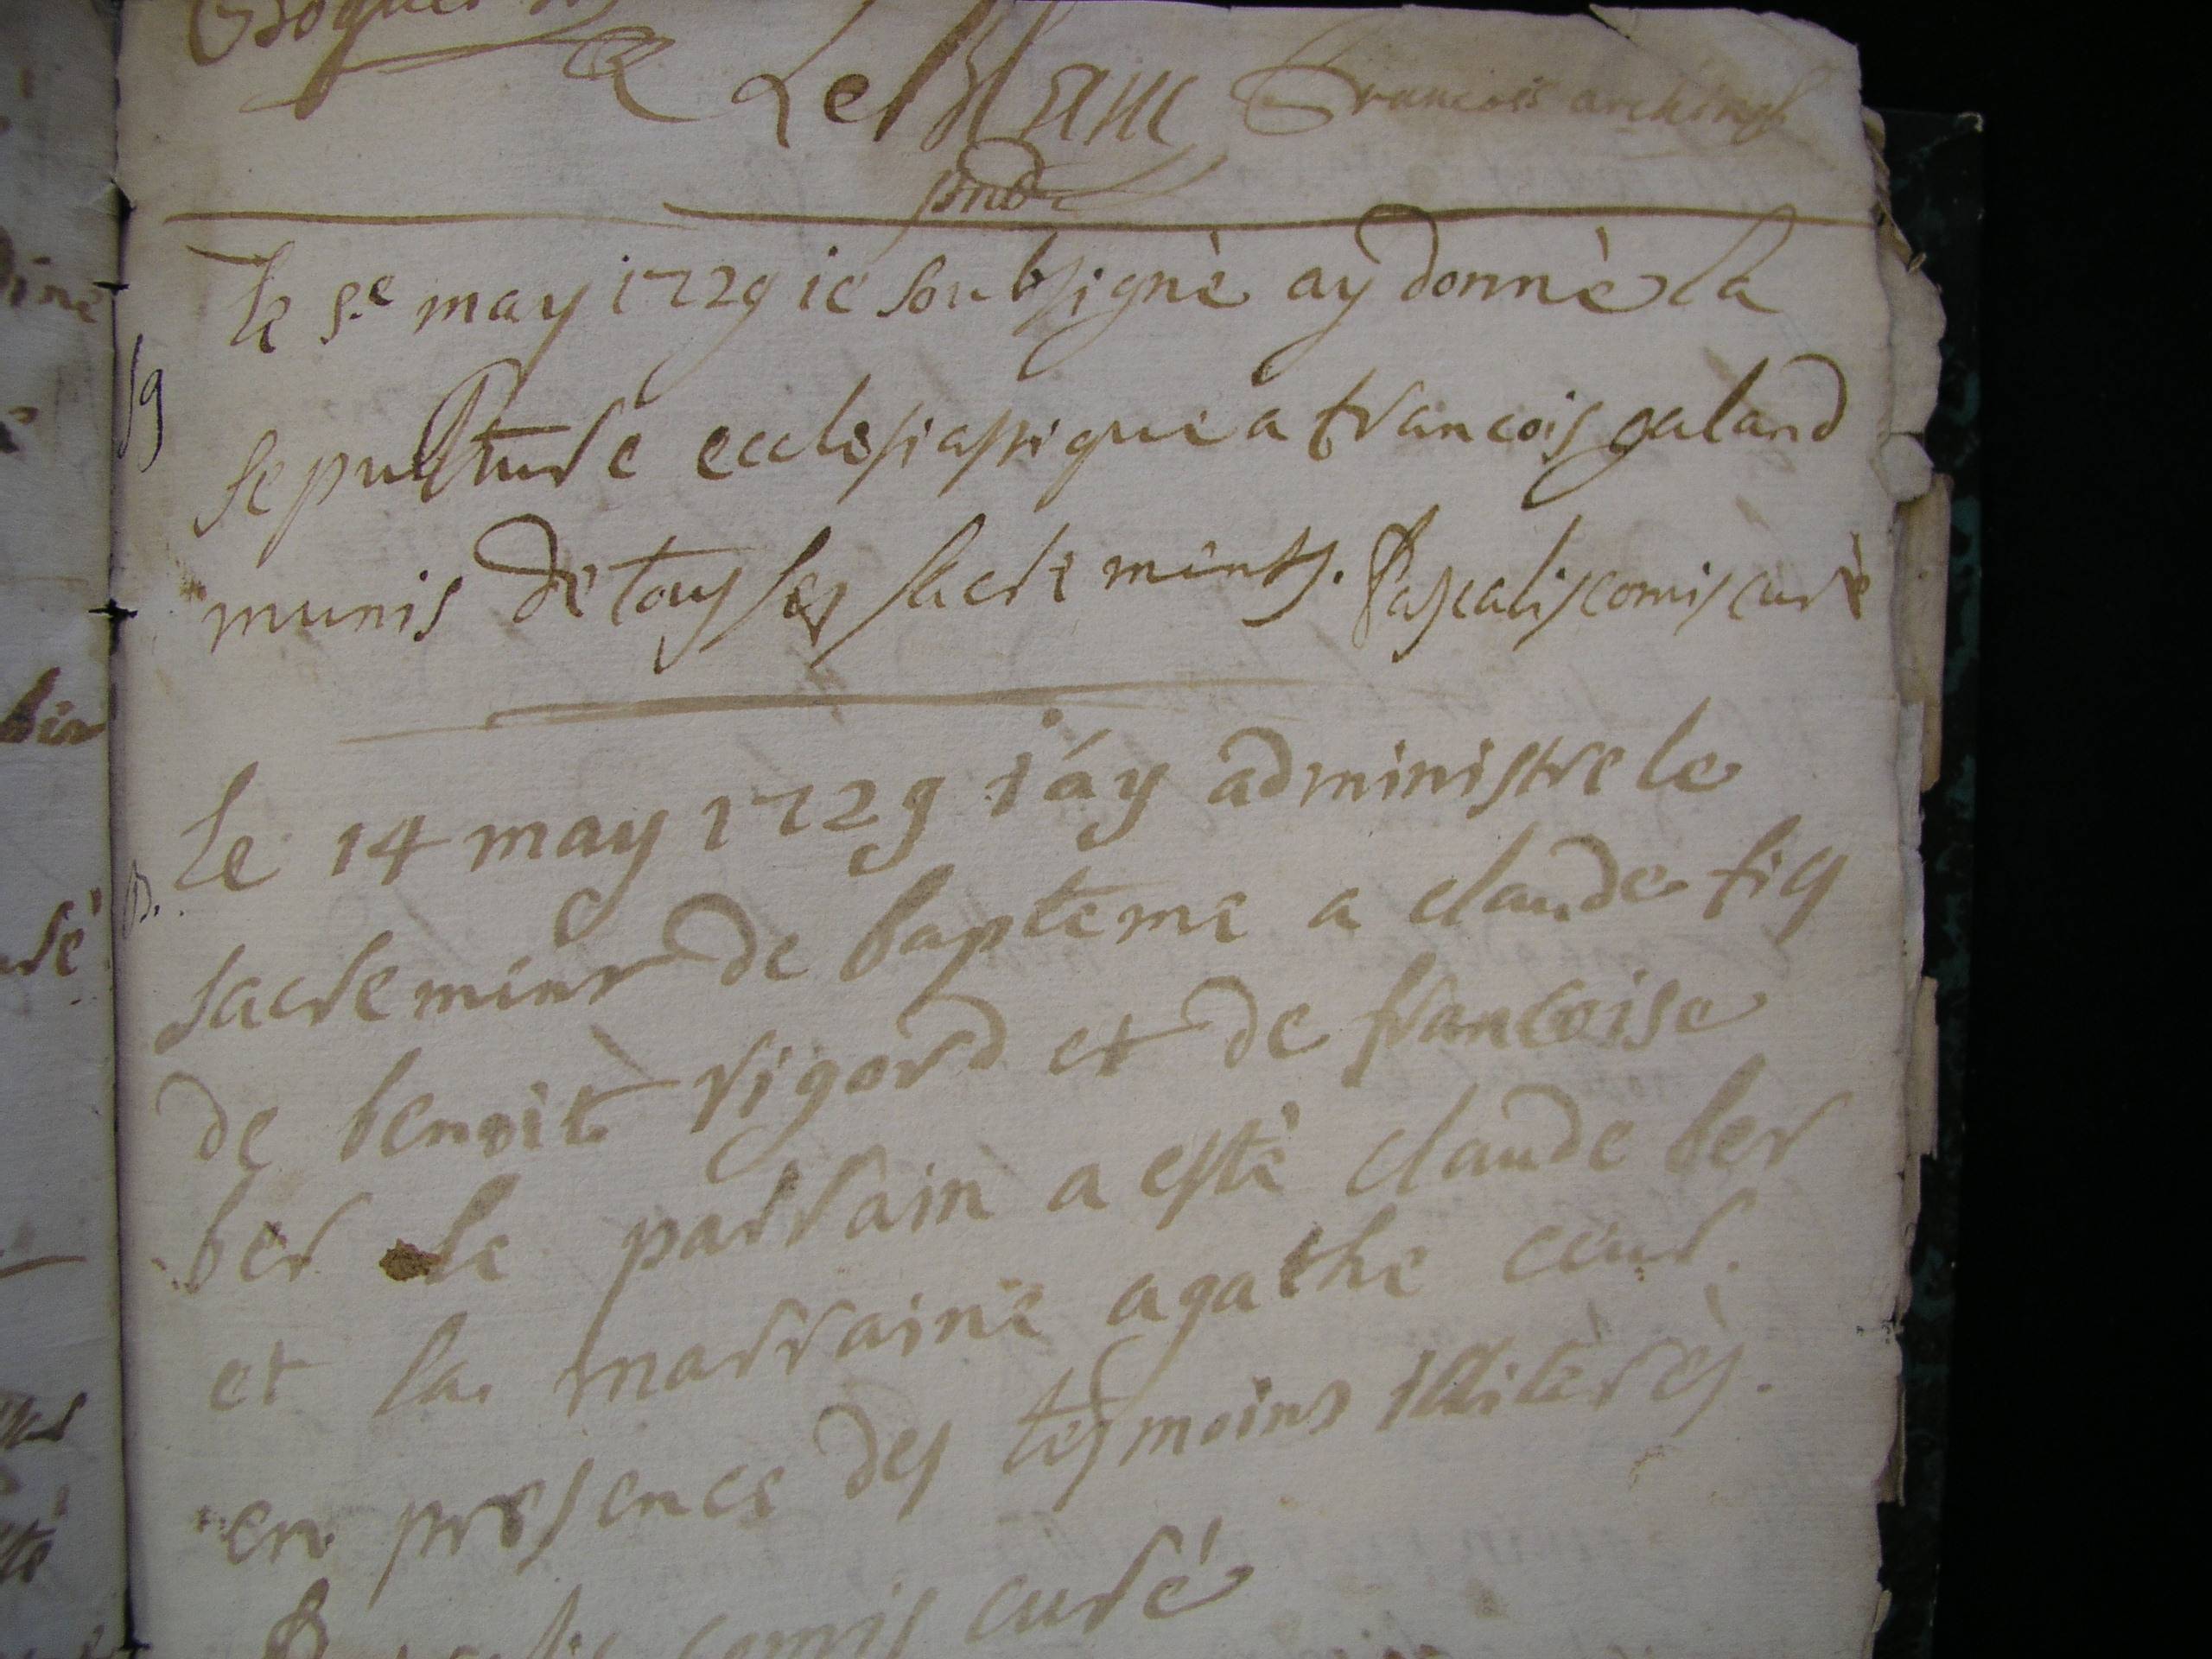 LeBlanc Francois
Le 5.e may 1729 ie soubsignè ay donnè la
sepulture ecclesiastique a francois galand
munis de tous ses sacrements. Pascalis comis curè
Le 14 may 1729 i'ay administre le
B.
sacrement de bapteme a claude fis
de benoit rigord et de francoise
ber le parrain a estè claude ber
et la marraine agathe
en presence des tesmoins illitères.
Pascalis comis curé